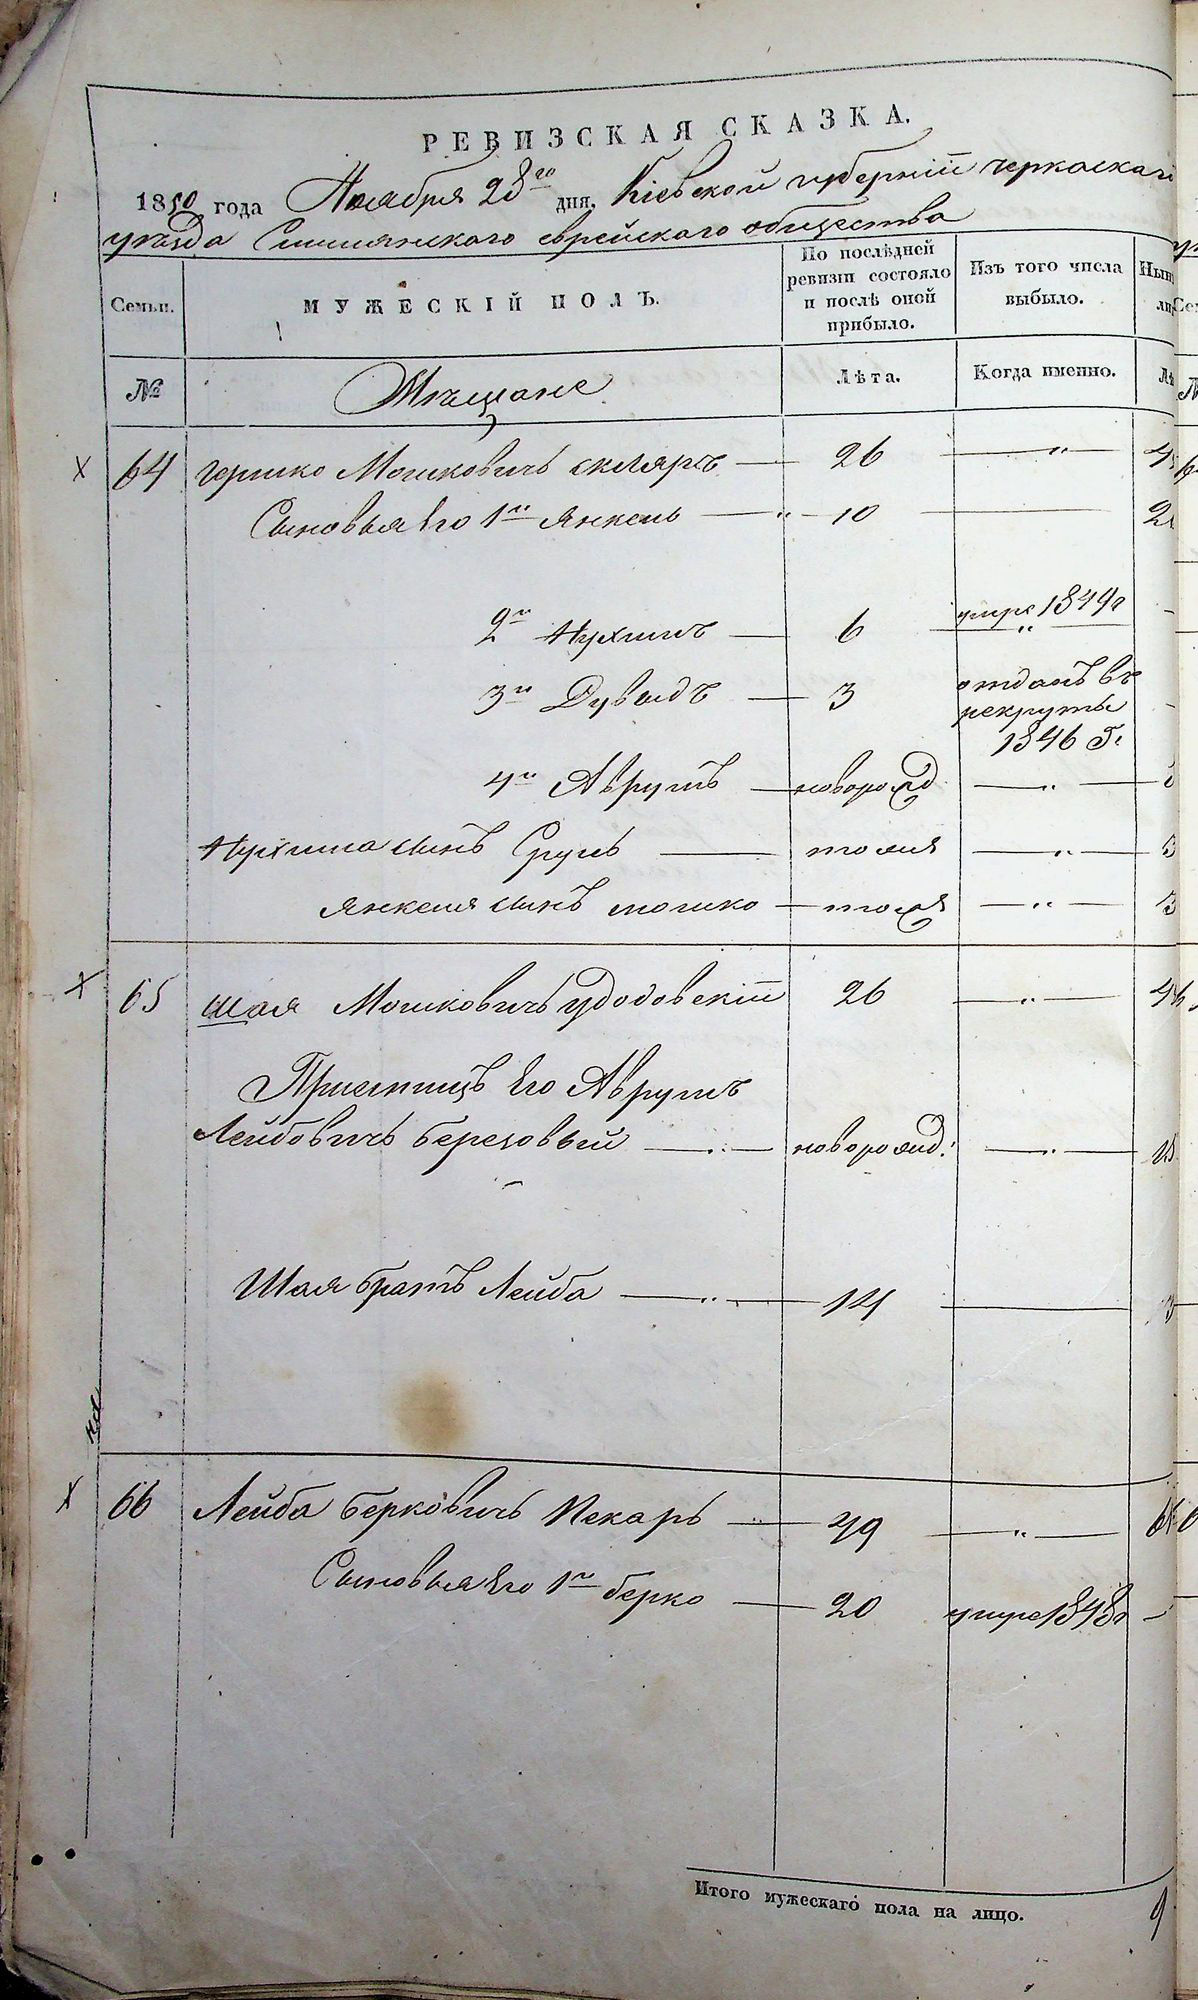 РЕВИЗСКАЯ СКАЗКА.
1850 года Ноября 28го дня, Кіевской губерніи черкаскаго
уезда Смилянскаго еврейскаго общества
Семьи. МУЖЕСКІЙ ПОЛЪ. По послѣдней ревизіи состояло и послѣ оной прибыло. Изъ того числа выбыло.
№ Мещане Лѣта. Когда именно.
х 64 Гершко Мошковичь скляръ — 26 — " —
Сыновья Его 1й Янкель — " — 10 —
2й Нухимъ — 6 умре 1849г
3й Дувидъ — 3 отданъ въ
рекруты
1846 г.
4й Аврумъ — новорожд — " —
Нухима сынъ Сруль — тожъ — " —
Янкеля сынъ мошко — тожъ — " —
х 65 Шая Мошковичь Удодовскій 26 — " —
Приемышъ Его Аврумъ
Лейбовичь березовый — " — новорожд: — " —
Шая братъ Лейба — " — 14 —
х 66 Лейба берковичь Пекарь — 49 — " —
Сыновья Его 1й берко — 20 умре 1848г —
Итого мужескаго пола на лицо. 9